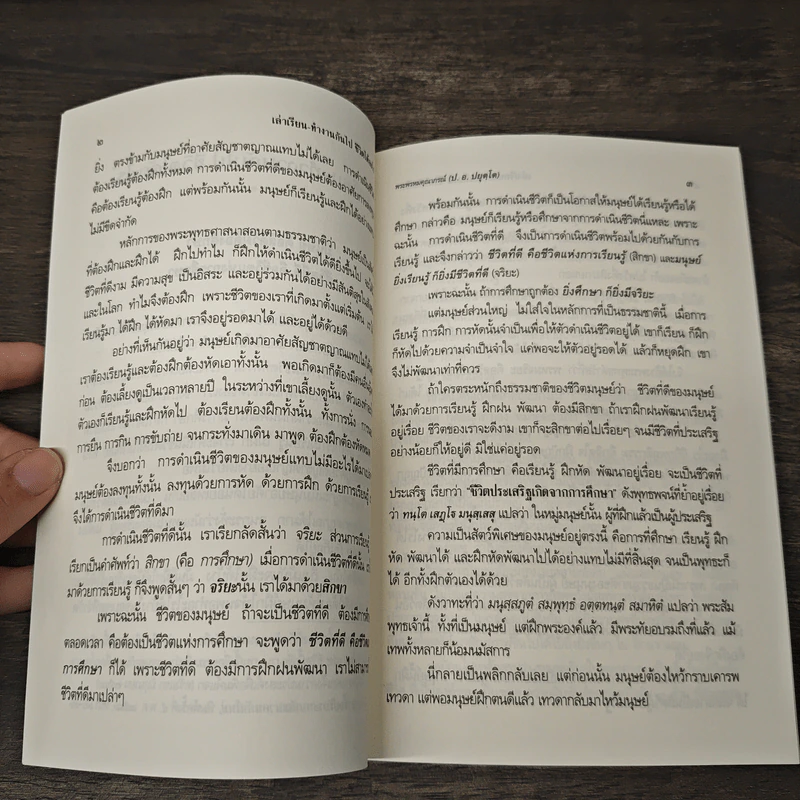 ๒
เล่าเรียน-ทำงานกันไป ชีวิต
ยิ่ง ตรงข้ามกับมนุษย์ที่อาศัยสัญชาตญาณแทบไม่ได้เลย การดำเนิน
ต้องเรียนรู้ต้องฝึกทั้งหมด การดำเนินชีวิตที่ดีของมนุษย์ต้องอาศัย
คือต้องเรียนรู้ต้องฝึก แต่พร้อมกันนั้น มนุษย์ก็เรียนรู้และฝึกได้
ไม่มีขีดจำกัด
หลักการของพระพุทธศาสนาสอนตามธรรมชาติว่า มนุษย์เป็น
ที่ต้องฝึกและฝึกได้ ฝึกไปทำไม ก็ฝึกให้ดำเนินชีวิตได้ดียิ่งขึ้นไป
ชีวิตที่ดีงาม มีความสุข เป็นอิสระ และอยู่ร่วมกันได้อย่างมีสันติสุข
และในโลก ทำไมจึงต้องฝึก เพราะชีวิตของเราที่เกิดมาตั้งแต่เริ่มต้น
เรียนรู้มา ได้ฝึก ได้หัดมา เราจึงอยู่รอดมาได้ และอยู่ได้ด้วยดี
อย่างที่เห็นกันอยู่ว่า มนุษย์เกิดมาอาศัยสัญชาตญาณแทบไม่ได้
เราต้องเรียนรู้และต้องฝึกต้องหัดเอาทั้งนั้น พอเกิดมาก็ต้องมี
ก่อน ต้องเลี้ยงดูเป็นเวลาหลายปี ในระหว่างที่เขาเลี้ยงดูนั้น ตัวเอง
ตัวเองก็เรียนรู้และฝึกหัดไป ต้องเรียนต้องฝึกทั้งนั้น ทั้งการนั่ง การ
การยืน การกิน การขับถ่าย จนกระทั่งมาเดิน มาพูด ต้องฝึกต้องหัด
จึงบอกว่า การดำเนินชีวิตของมนุษย์แทบไม่มีอะไรได้มา
มนุษย์ต้องลงทุนทั้งนั้น ลงทุนด้วยการหัด ด้วยการฝึก ด้วยการเรียนรู้
จึงได้การดำเนินชีวิตที่ดีมา
การดำเนินชีวิตที่ดีนั้น เราเรียกลัดสั้นว่า จริยะ ส่วนการเรียนรู้
เรียกเป็นคำศัพท์ว่า สิกขา (คือ การศึกษา) เมื่อการดำเนินชีวิตที่ดีนั้น
มาด้วยการเรียนรู้ ก็จึงพูดสั้นๆ ว่า จริยะนั้น เราได้มาด้วยสิกขา
เพราะฉะนั้น ชีวิตของมนุษย์ ถ้าจะเป็นชีวิตที่ดี ต้องมีการ
ตลอดเวลา คือต้องเป็นชีวิตแห่งการศึกษา จะพูดว่า ชีวิตที่ดี คือชีวิต
การศึกษา ก็ได้ เพราะชีวิตที่ดี ต้องมีการฝึกฝนพัฒนา เราไม่สามารถ
ชีวิตที่ดีมาเปล่าๆ
พระพรหมคุณาภรณ์ (ป. อ. ปยุตฺโต)
๓
พร้อมกันนั้น การดำเนินชีวิตก็เป็นโอกาสให้มนุษย์ได้เรียนรู้หรือได้
ศึกษา กล่าวคือ มนุษย์ก็เรียนรู้หรือศึกษาจากการดำเนินชีวิตนี่แหละ เพราะ
ฉะนั้น การดำเนินชีวิตที่ดี จึงเป็นการดำเนินชีวิตพร้อมไปด้วยกันกับการ
เรียนรู้ และจึงกล่าวว่า ชีวิตที่ดี คือชีวิตแห่งการเรียนรู้ (สิกขา) และมนุษย์
ยิ่งเรียนรู้ ก็ยิ่งมีชีวิตที่ดี (จริยะ)
เพราะฉะนั้น ถ้าการศึกษาถูกต้อง ยิ่งศึกษา ก็ยิ่งมีจริยะ
แต่มนุษย์ส่วนใหญ่ ไม่ใส่ใจในหลักการที่เป็นธรรมชาตินี้ เมื่อการ
เรียนรู้ การฝึก การหัดนั้นจำเป็นเพื่อให้ตัวดำเนินชีวิตอยู่ได้ เขาก็เรียน ก็ฝึก
ก็หัดไปด้วยความจำเป็นจำใจ แค่พอจะให้ตัวอยู่รอดได้ แล้วก็หยุดฝึก เขา
จึงไม่พัฒนาเท่าที่ควร
ถ้าใครตระหนักถึงธรรมชาติของชีวิตมนุษย์ว่า ชีวิตที่ดีของมนุษย์
ได้มาด้วยการเรียนรู้ ฝึกฝน พัฒนา ต้องมีสิกขา ถ้าเราฝึกฝนพัฒนาเรียนรู้
อยู่เรื่อย ชีวิตของเราจะดีงาม เขาก็จะสิกขาต่อไปเรื่อยๆ จนมีชีวิตที่ประเสริฐ
อย่างน้อยก็ให้อยู่ดี มิใช่แค่อยู่รอด
ชีวิตที่มีการศึกษา คือเรียนรู้ ฝึกหัด พัฒนาอยู่เรื่อย จะเป็นชีวิตที่
ประเสริฐ เรียกว่า “ชีวิตประเสริฐเกิดจากการศึกษา” ดังพุทธพจน์ที่ย้ำอยู่เรื่อย
ว่า ทนฺโต เสฏฺโฐ มนุสฺเสสุ แปลว่า ในหมู่มนุษย์นั้น ผู้ที่ฝึกแล้วเป็นผู้ประเสริฐ
ความเป็นสัตว์พิเศษของมนุษย์อยู่ตรงนี้ คือการที่ศึกษา เรียนรู้ ฝึก
หัด พัฒนาได้ และฝึกหัดพัฒนาไปได้อย่างแทบไม่มีที่สิ้นสุด จนเป็นพุทธะก็
ได้ อีกทั้งฝึกตัวเองได้ด้วย
ดังวาทะที่ว่า มนุสฺสภูตํ สมฺพุทฺธํ อตฺตทนฺตํ สมาหิตํ แปลว่า พระสัม
พุทธเจ้านี้ ทั้งที่เป็นมนุษย์ แต่ฝึกพระองค์แล้ว มีพระทัยอบรมถึงที่แล้ว แม้
เทพทั้งหลายก็น้อมนมัสการ
นี่กลายเป็นพลิกกลับเลย แต่ก่อนนั้น มนุษย์ต้องไหว้กราบเคารพ
เทวดา แต่พอมนุษย์ฝึกตนดีแล้ว เทวดากลับมาไหว้มนุษย์